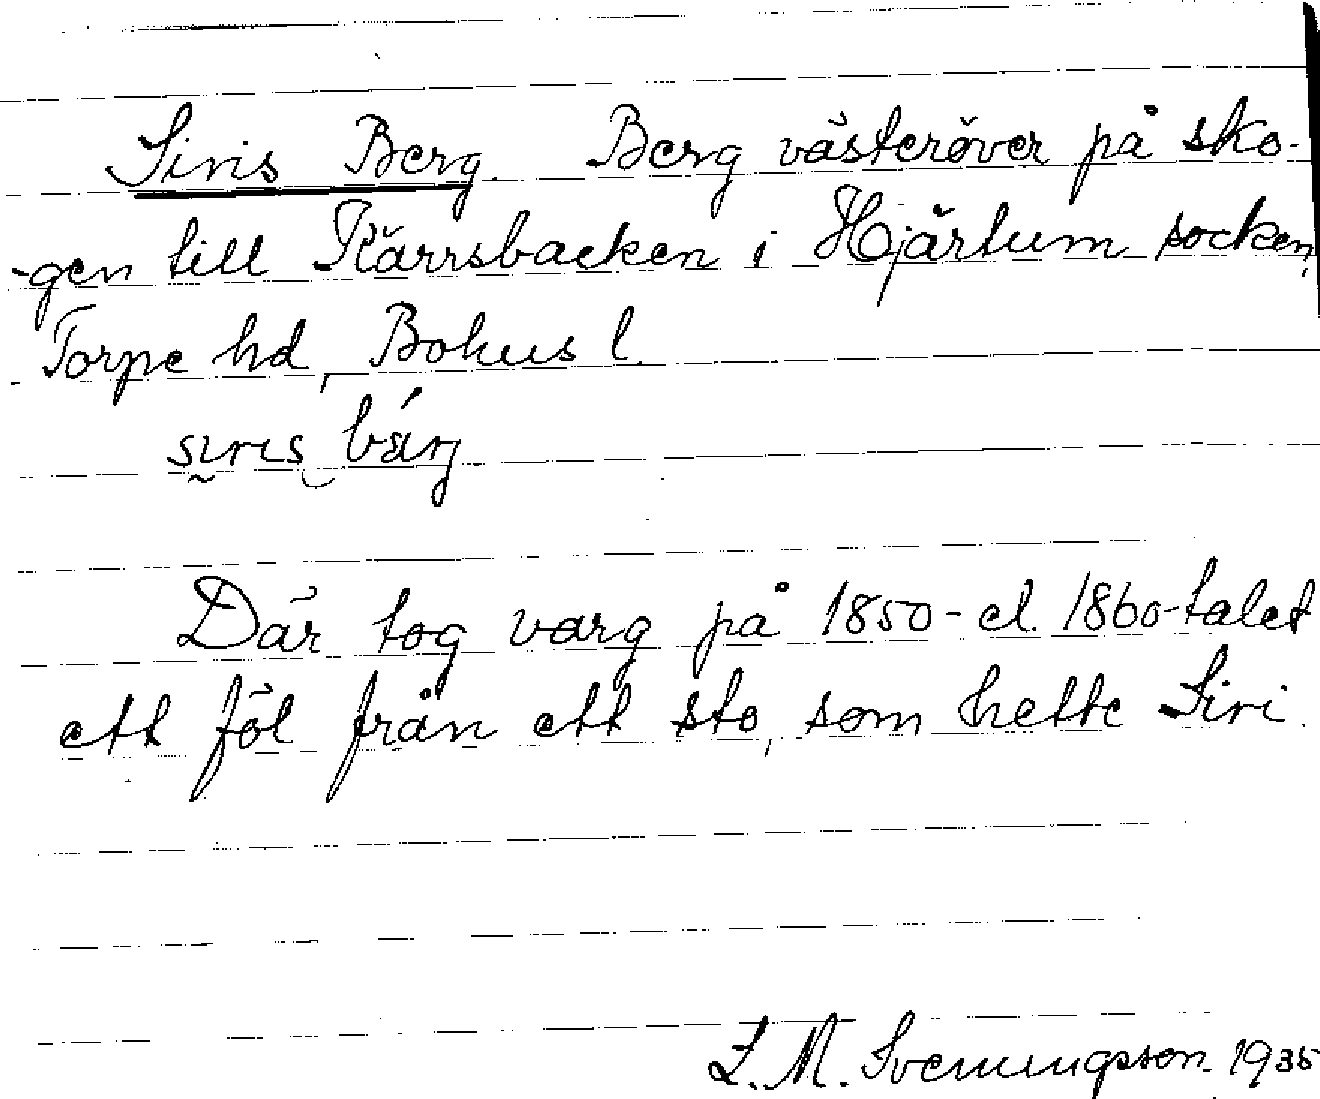 Siris Berg. Berg västeröver på sko-
-gen till Kärrsbacken i Hjärtum socken,
Torpe hd, Bohus l.
siris bärj
Där tog varg på 1850- el. 1860-talet
ett föl från ett sto, som hette Siri.
L. M. Svenungsson 1935